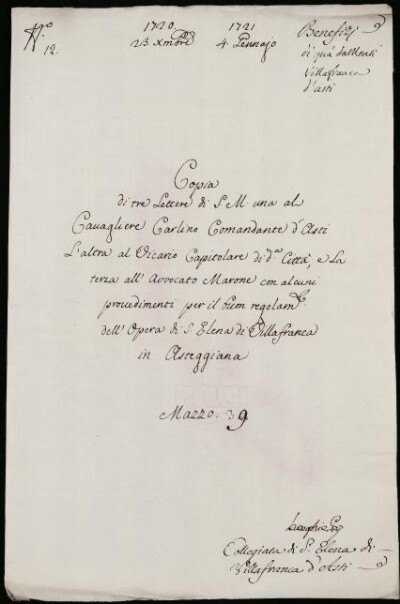 N.º 12.
1720 1721
23 Xmbre 4 Gennajo
Benefizj
di quà da Monti
Villafranca
d'asti
Copia
di tre Lettere di S. M. una al
Cavagliere Carlino Comandante d'Asti
L'altra al Vicario Capitolare di d.ta Città, e La
terza all'Avvocato Marone con alcuni
provedimenti per il buon regolam.to
dell'Opera di S. Elena di Villafranca
in Asteggiana
Mazzo. 39
Collegiata di S.t Elena di
Villafranca d'Asti